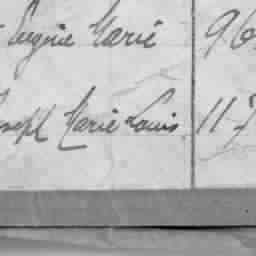 Eugène Marie 96
Joseph Marie Louis 117